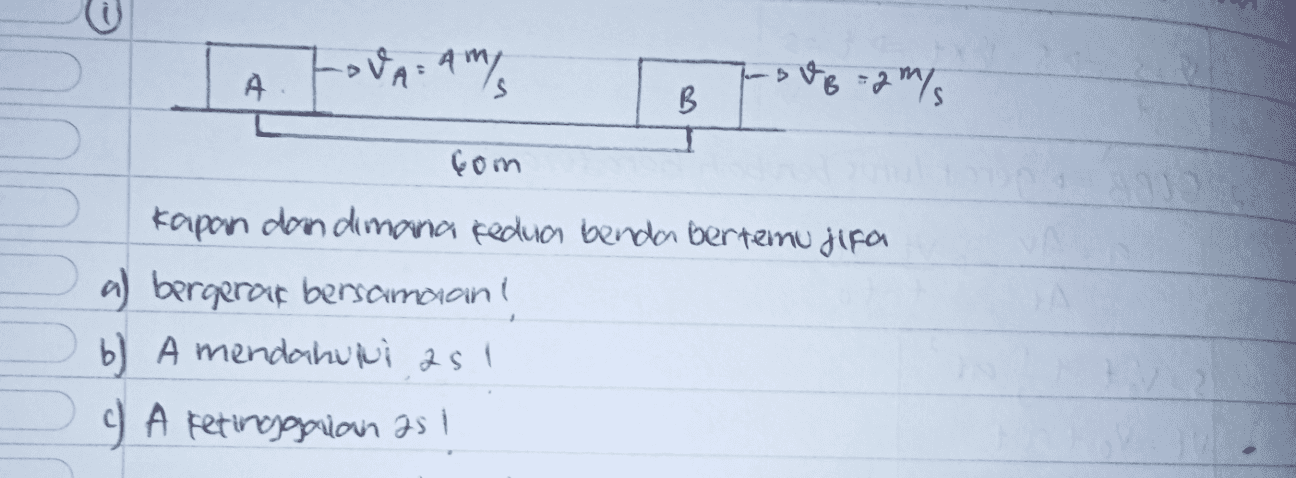 1
A → VA = 4 m/s B → VB = 2 m/s
60 m
kapan dan dimana kedua benda bertemu jika
a) bergerak bersamaan!
b) A mendahului 2s!
c) A ketinggalan 2s!